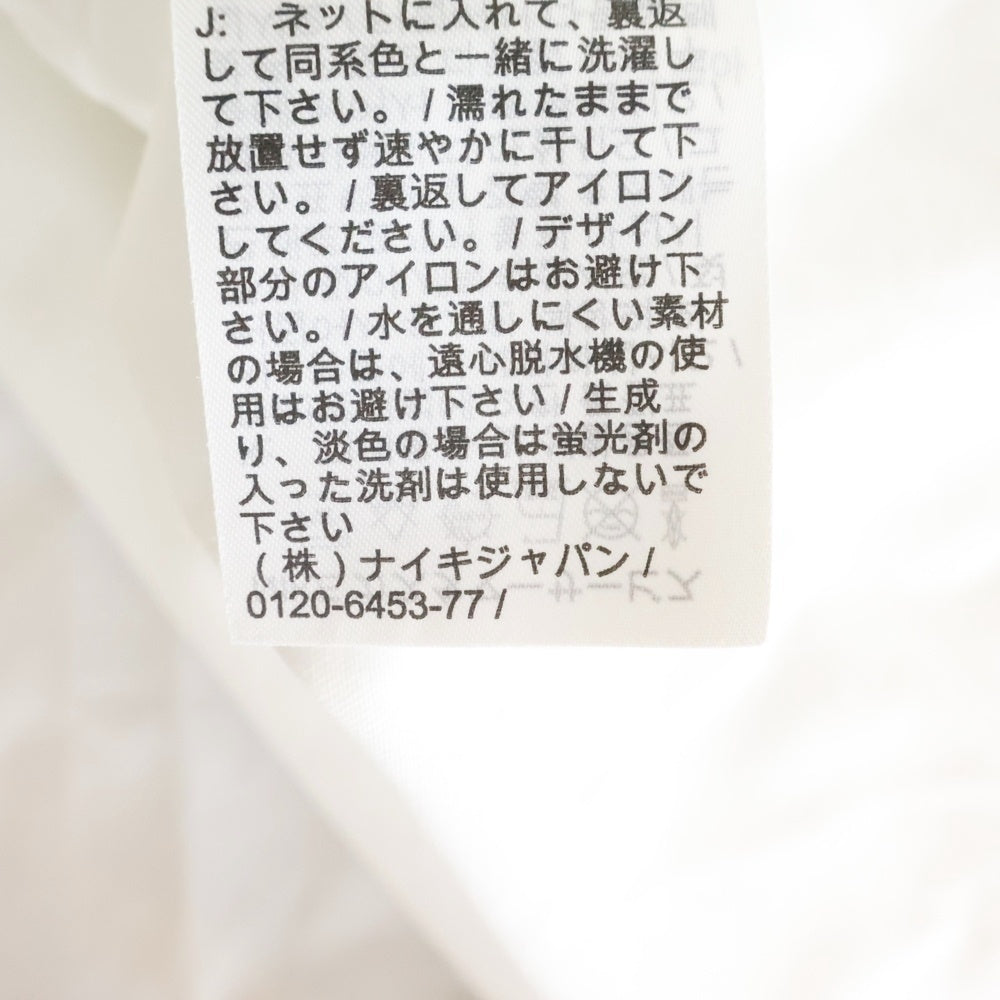 J: ネットに入れて、裏返
して同系色と一緒に洗濯し
て下さい。 / 濡れたままで
放置せず速やかに干して下
さい。 / 裏返してアイロン
してください。 / デザイン
部分のアイロンはお避け下
さい。 / 水を通しにくい素材
の場合は、遠心脱水機の使
用はお避け下さい / 生成
り、淡色の場合は蛍光剤の
入った洗剤は使用しないで
下さい
(株)ナイキジャパン /
0120-6453-77 /